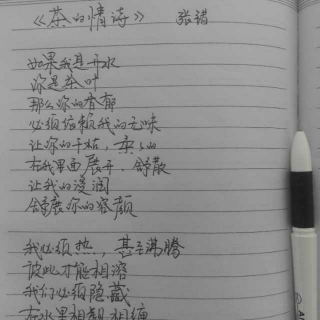 《茶的情诗》 张错
如果我是开水
你是茶叶
那么你的香郁
必须依赖我的无味
让你的干枯，柔柔的
在我里面展开，舒散
让我的浸润
舒展你的容颜
我必须热，甚至沸腾
彼此才能相溶
我们必须隐藏
在水里相觑相缠